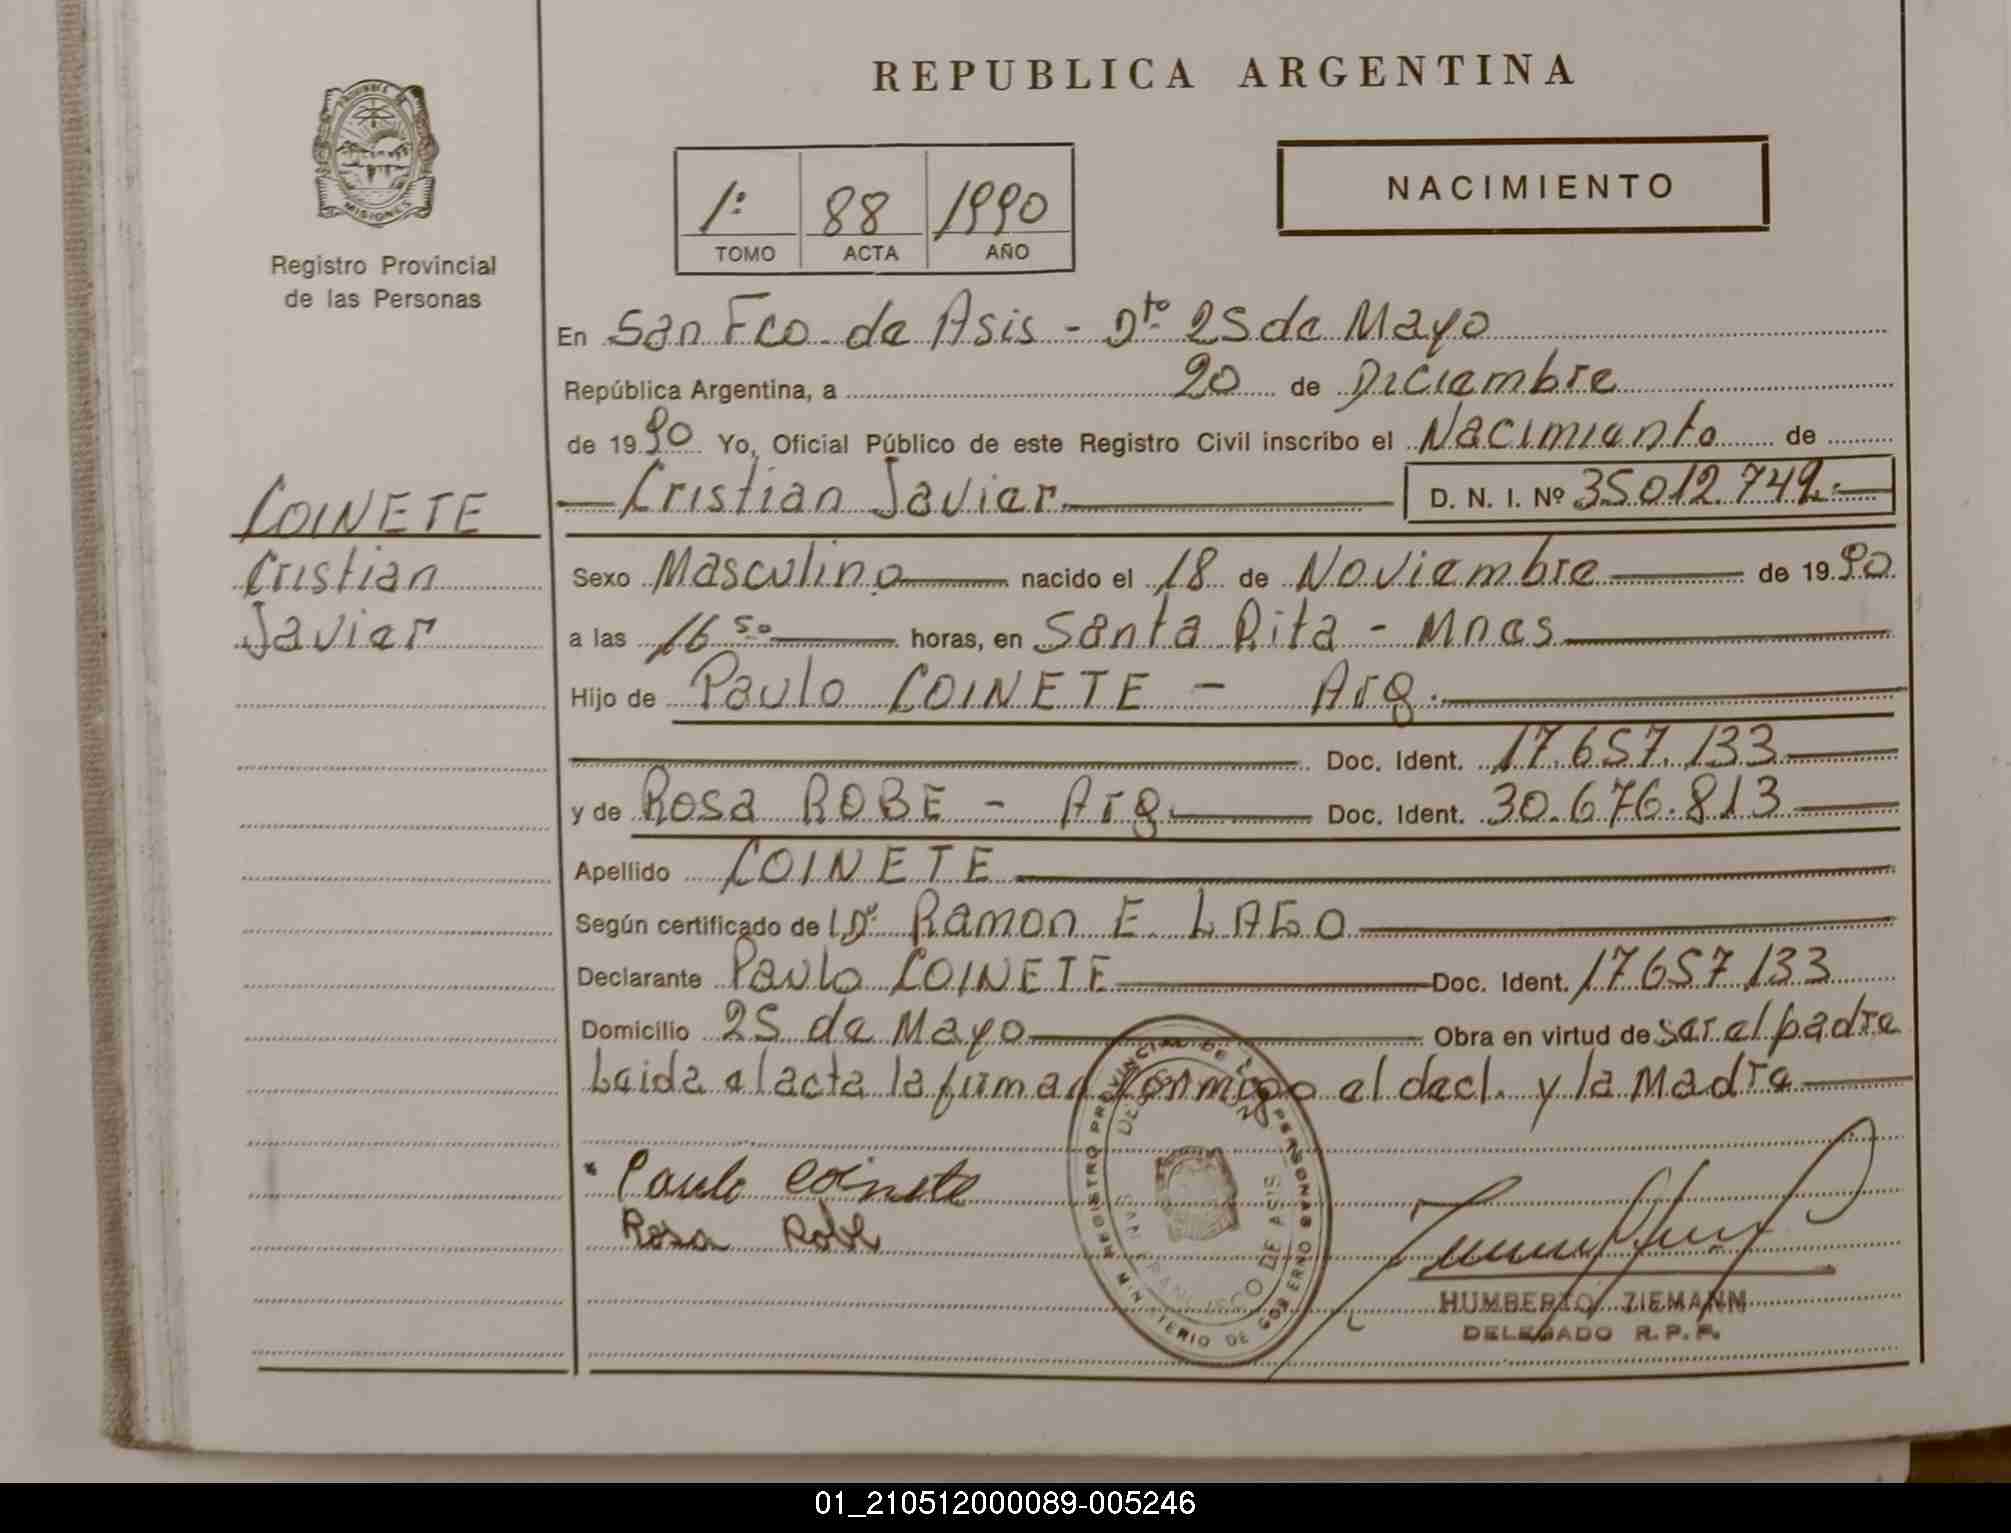 REPUBLICA ARGENTINA
PROVINCIA DE
MISIONES
Registro Provincial
de las Personas
NACIMIENTO
1º 88 1990
TOMO ACTA AÑO
En San Fco. de Asis - Dto 25 de Mayo
República Argentina, a 20 de Diciembre
de 1990 Yo, Oficial Público de este Registro Civil inscribo el Nacimiento de
Cristian Javier D. N. I. Nº 35012.749.-
COINETE
Cristian
Javier
Sexo Masculino nacido el 18 de Noviembre de 1990
a las 16 50 horas, en Santa Rita - Mnes
Hijo de Paulo COINETE - Arg.
Doc. Ident. 17.657.133
y de Rosa ROBE - Arg Doc. Ident. 30.676.813
Apellido COINETE
Según certificado de Dr. Ramon E. LAGO
Declarante Paulo COINETE Doc. Ident. 17657133
Domicilio 25 de Mayo Obra en virtud de ser el padre
Leida el acta la firman conmigo el decl. y la Madre
Paulo Coinete
Rosa Robe
REGISTRO PROVINCIAL DE LAS PERSONAS
DELEGACION
SAN FRANCISCO DE ASIS
MINISTERIO DE GOBIERNO
HUMBERTO ZIEMANN
DELEGADO R. P. P.
01_210512000089-005246